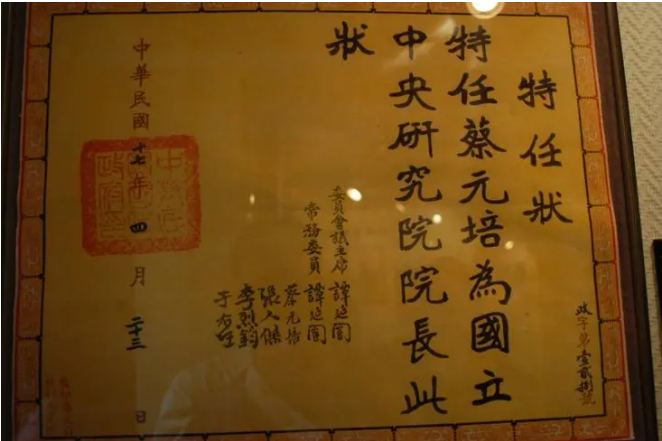 特任狀
特任蔡元培為國立
中央研究院院長此
狀
委員會議主席 譚延闓
常務委員 譚延闓
蔡元培
張人傑
李烈鈞
于右任
中華民國十七年四月二十三日
政字第壹貳捌號